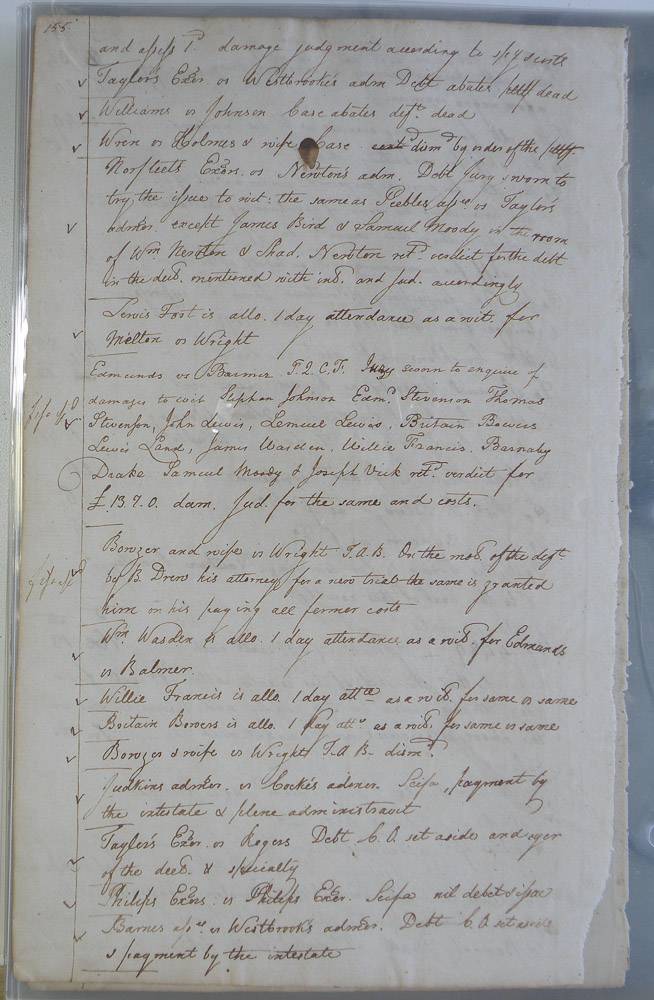 155
and assess 1d. damage judgment according to specy & costs
Taylor's Exor. vs Westbrook's adm Debt abates pltff dead
Williams vs Johnson Case abates deft. dead
Wren vs Holmes & wife Case dismd by order of the pltff.
Norfleets Exors. vs Newton's adm. Debt Jury sworn to
try the issue to wit: the same as Peebles assee vs Taylor's
admor. except James Bird & Samuel Moody in the room
of Wm Newton & Shad. Newton retd. verdict for the debt
in the decl. mentioned with int. and Jud. accordingly
Lewis Fort is allo. 1 day attendance as a wit. for
Melton vs Wright
Edmunds vs Barmer T.Q.C.F. Jury sworn to enquire of
fi fa issd
damages to wit Stephen Johnson Edmd. Stevenson Thomas
Stevenson, John Lewis, Lemuel Lewis, Britain Bowers
Lewis Land, James Wasden, Willie Francis, Barnaby
Drake Samuel Moody & Joseph Vick retd. verdict for
£.13.7.0. dam. Jud. for the same and costs.
Bowzer and wife vs Wright T.A.B. On the mot. of the deft.
fi fa issd
by B. Drew his attorney for a new trial the same is granted
him on his paying all former costs
Wm. Wasden is allo. 1 day attendance as a wit. for Edmunds
vs Balmer.
Willie Francis is allo. 1 day attce as a wit. for same vs same
Britain Bowers is allo. 1 day atte as a wit. for same vs same
Bowzer & wife vs Wright T.A.B. dismd.
Judkins admor. vs Cocke's admor Scifa, payment by
the intestate & plene administravit
Taylor's Exor. vs Rogers Debt C.O. set aside and oyer
of the decl. & specialty
Philips Exors. vs Philips Exor. Scifa nil debet & issue
Barnes assee vs Westbrook's admor. Debt C.O. set aside
& payment by the intestate